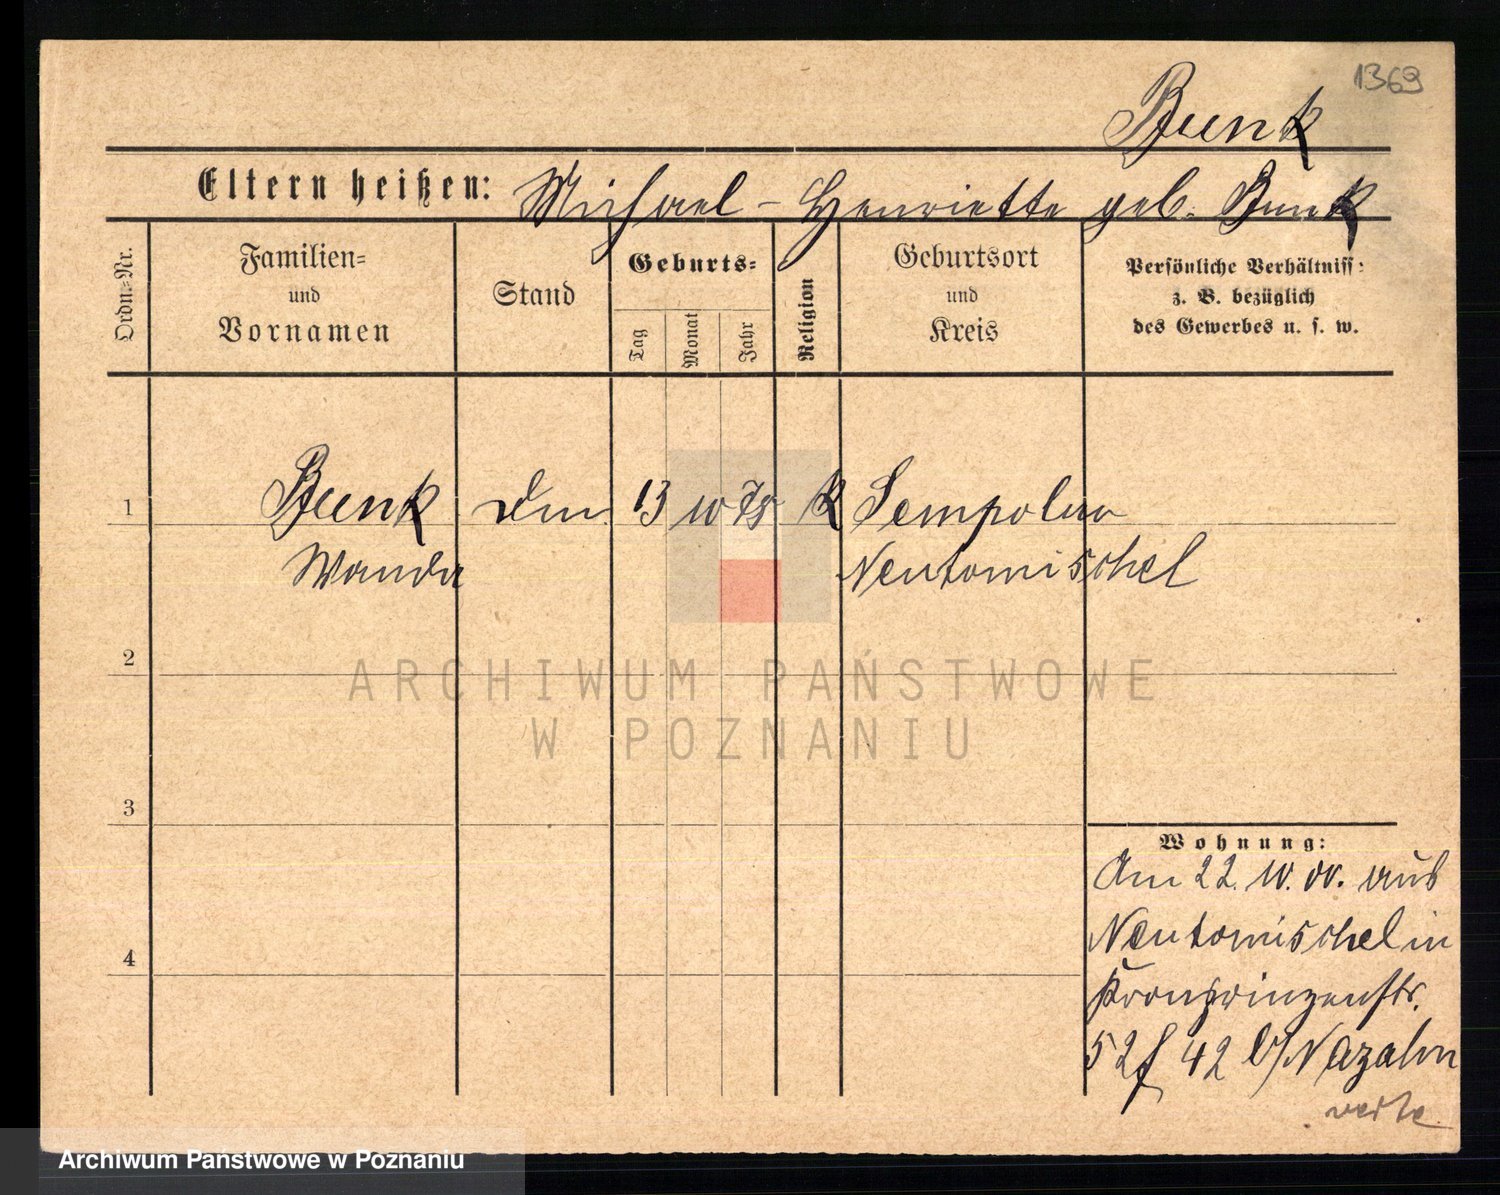 1369
Bunk
Eltern heißen: Michael - Henriette geb. Bunk
Ordn.-Nr.
Familien-
und
Vornamen
Stand
Geburts-
Tag
Monat
Jahr
Religion
Geburtsort
und
Kreis
Persönliche Verhältniss:
z. B. bezüglich
des Gewerbes u. s. w.
1 Bunk 13 10 78 K Sempolno
Wanda Neutomischel
2
ARCHIWUM PAŃSTWOWE
W POZNANIU
3
Wohnung:
Am 22. 10. 00. aus
Neutomischel in
4
Kronprinzenstr.
52 42 b/
verte
Archiwum Państwowe w Poznaniu